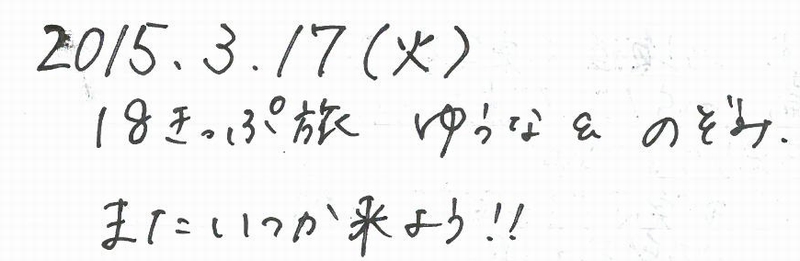 2015.3.17(火)
18きっぷ旅 ゆうな & のぞみ.
またいつか来よう!!